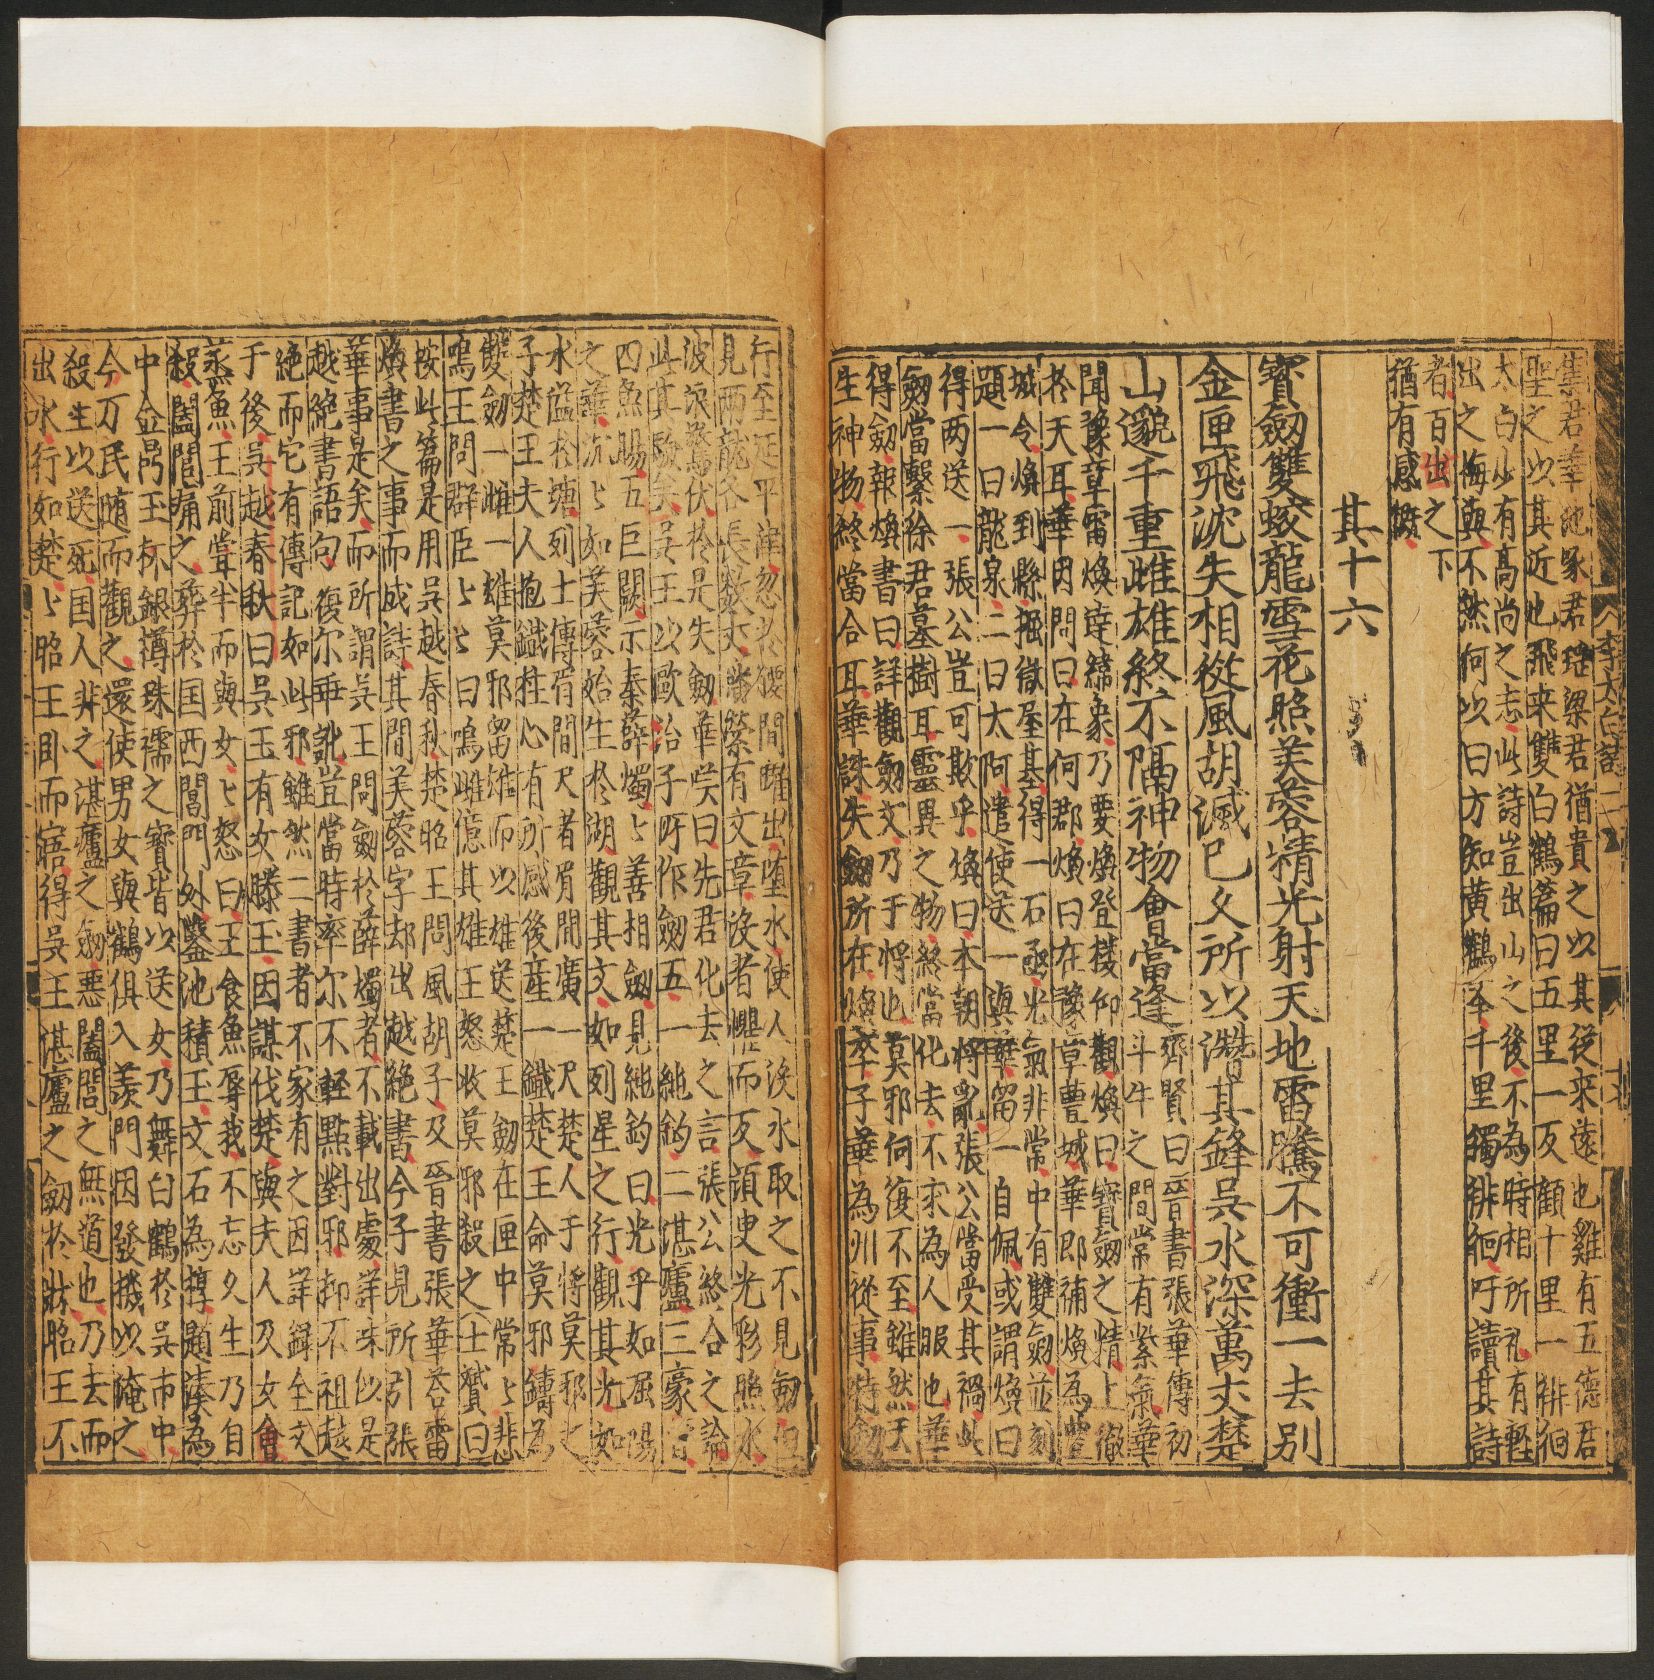 李太白詩二
集君華池啄君稻梁君猶貴之以其從来遠也雞有五德君
聖之以其近也飛来雙白鶴篇曰五里一反顧十里一徘徊
太白少有高尚之志此詩豈出山之後不為時相所礼有輕
出之悔與不然何以曰方知黄鶴举千里獨徘徊吁讀其詩
者百出之下
猶有感慨
其十六
寳劒雙蛟龍雪花照芙蓉精光射天地雷騰不可衝一去別
金匣飛沈失相從風胡滅已久所以潛其鋒吳水深萬丈楚
山邈千重雌雄終不隔神物會當逢
齊賢曰晉書張華傳初
斗牛之間常有紫氣華
聞豫章雷煥達緯象乃要煥登樓仰觀煥曰寳劒之精上徹
於天耳華因問曰在何郡煥曰在豫章豊城華即補煥為豊
城令煥到縣掘獄屋基得一石函光氣非常中有雙劒並刻
題一曰龍泉二曰太阿遣使送一與華留一自佩或謂煥曰
得两送一張公豈可欺乎煥曰本朝將亂張公當受其禍此
劒當繫徐君墓樹耳靈異之物終當化去不永為人服也華
得劒報煥書曰詳觀劒文乃干將也莫邪何復不至雖然天
生神物終當合耳華誅失劒所在煥卒子華為州從事持劒
行至延平津忽於腰間躍出墮水使人沒水取之不見劒但
見两龍各長数丈蟠縈有文章沒者懼而反湏臾光彩照水
波浪驚伏於是失劒華嘆曰先君化去之言張公終合之論
此其驗矣吳王以歐冶子吁作劒五一純鈎二湛盧三豪曹
四魚腸五巨闕示秦薛燭燭善相劒見純鈎曰光乎如屈陽
之華沉沉如芙蓉始生於湖觀其文如列星之行觀其光如
水溢於塘列士傳眉間尺者眉間廣一尺楚人干將莫邪之
子楚王夫人抱鐵柱心有所感後産一鐵楚王命莫邪鑄為
雙劒一雌一雄莫邪留雄而以雌送楚王劒在匣中常常悲
鳴王問群臣臣曰鳴雌億其雄王怒收莫邪殺之士贇曰
按此篇是用吳越春秋楚昭王問風胡子及晉書張華荅雷
煥書之事而成詩其間芙蓉字却出越絶書今子見所引張
華事是矣而所謂吳王問劒於薛燭者不載出處詳味似是
越絶書語句復尔乖訛豈當時率尔不輕點對邪抑不祖越
絶而它有傳記如此邪雖然二書者不家有之因詳錄全文
于後吳越春秋曰吳王有女滕王因謀伐楚與夫人及女會
蒸魚王前甞半而與女女怒曰王食魚辱我不忘久生乃自
殺闔閭痛之葬於国西閶門外鑿池積玉文石為椁題湊為
中金鼎玉杯銀樽珠襦之寳皆以送女乃舞白鶴於吳市中
令万民随而觀之還使男女與鶴俱入羨門因發機以掩之
殺生以送死国人非之湛盧之劒惡闔閭之無道也乃去而
出水行如楚楚昭王卧而寤得吳王湛盧之劒於牀昭王不